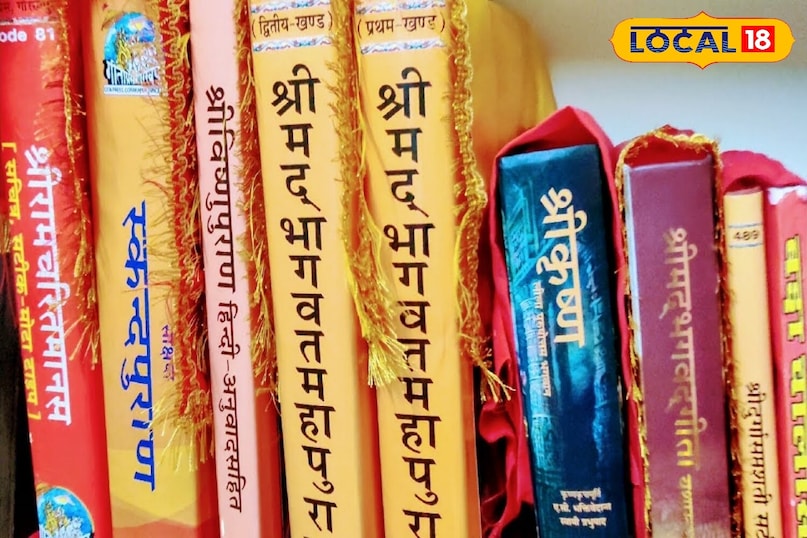 ode 81
श्रीरामचरितमानस
[ सचित्र, सटीक-मोटा टाइप ]
स्कन्दपुराण
संक्षिप्त
श्रीविष्णुपुराण हिन्दी-अनुवादसहित
(द्वितीय-खण्ड)
श्रीमद्भागवतमहापुरा
(प्रथम-खण्ड)
श्रीमद्भागवतमहापुरा
श्रीकृष्ण
कृष्णकृपामूर्ति
ए.सी. भक्तिवेदान्त
स्वामी प्रभुपाद
श्रीमद्भगवद्गीता
489
श्रीदुर्गासप्तशती
LOCAL 18